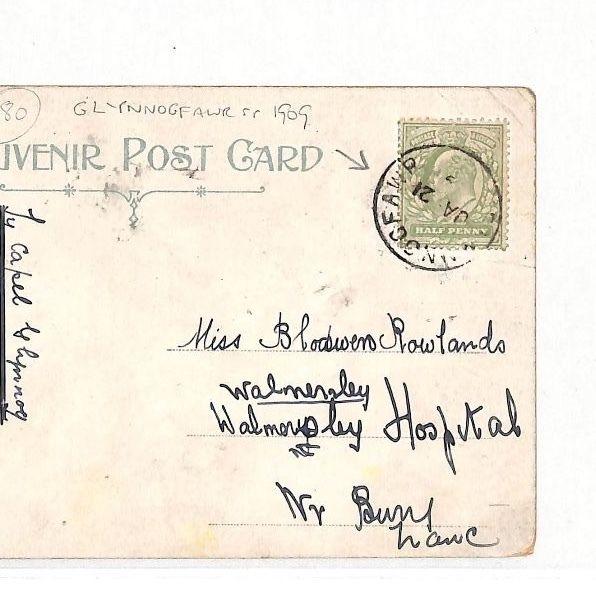 80
GLYNNOGFAWR 1909.
UVENIR POST CARD
HALF PENNY
NNOGFAWR
JA 21
Ty Capel Glynnog
Miss Blodwen Rowlands
Walmersley
Walmersley Hospital
Nr Bury
Lanc